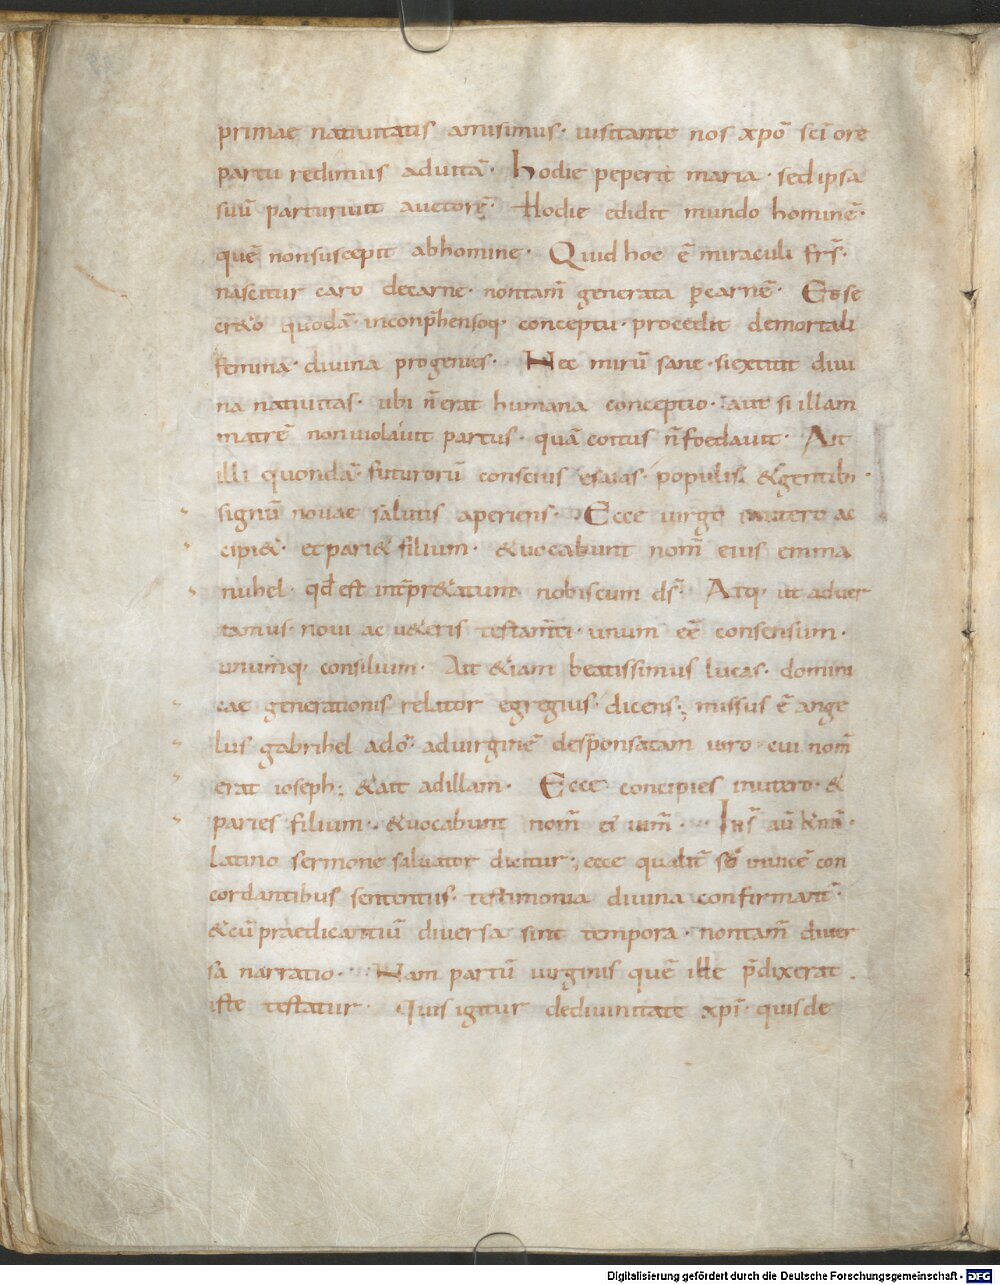 primae natiuitatis amisimus· uisitante nos xpō sc̄i ore
partu redimus aduitā· hodie peperit maria· sed ipsa
suū parturiuit auctorē· Hodie edidit mundo hominē·
quē nonsuscepit abhomine· Quid hoc ē miraculi frs̄·
nascitur caro decarne· nontam̄ generata p̱carnē· Et se
cr&o quodā· inconp̄hensoq· conceptu· procedit demortali
femina· diuina progenies· Nec mirū sane· siextitit diui
na natiuitas· ubi n̄ erat humana conceptio· aut si illam
matrē nonuiolauit partus· quā coitus n̄ foedauit· Ait
illi quondā· futurorū conscius esaias· populis &gentib·
signū nouae salutis aperiens· Ecce uirgo inutero ac
cipi&· et pari& filium· &uocabunt nom̄ eius emma
nuhel· qđ est int̄pr&atum nobiscum ds̄· Atq· ut aduer
tamus· noui ac u&eris testam̄ti· unum eē consensum·
unumq· consilium· Ait &iam beatissimus lucas· domini
cae generationis relator egregius· dicens; missus ē ange
lus gabrihel adō· aduirginē desponsatam uiro cui nom̄
erat ioseph; &ait adillam· Ecce concipies inutero· &
paries filium· &uocabunt nom̄ ei ihm̄· Ihs̄ aū
latino sermone saluator dicitur; ecce qualit̄ inuicē con
cordantibus sententiis· testimonia diuina confirmant̄·
&cū praedicantiū diuersa sint tempora· nontam̄ diuer
sa narratio· Nam partū uirginis quē ille p̄dixerat·
iste testatur· Quis igitur dediuinitate xpī· quis de
Digitalisierung gefördert durch die Deutsche Forschungsgemeinschaft - DFG